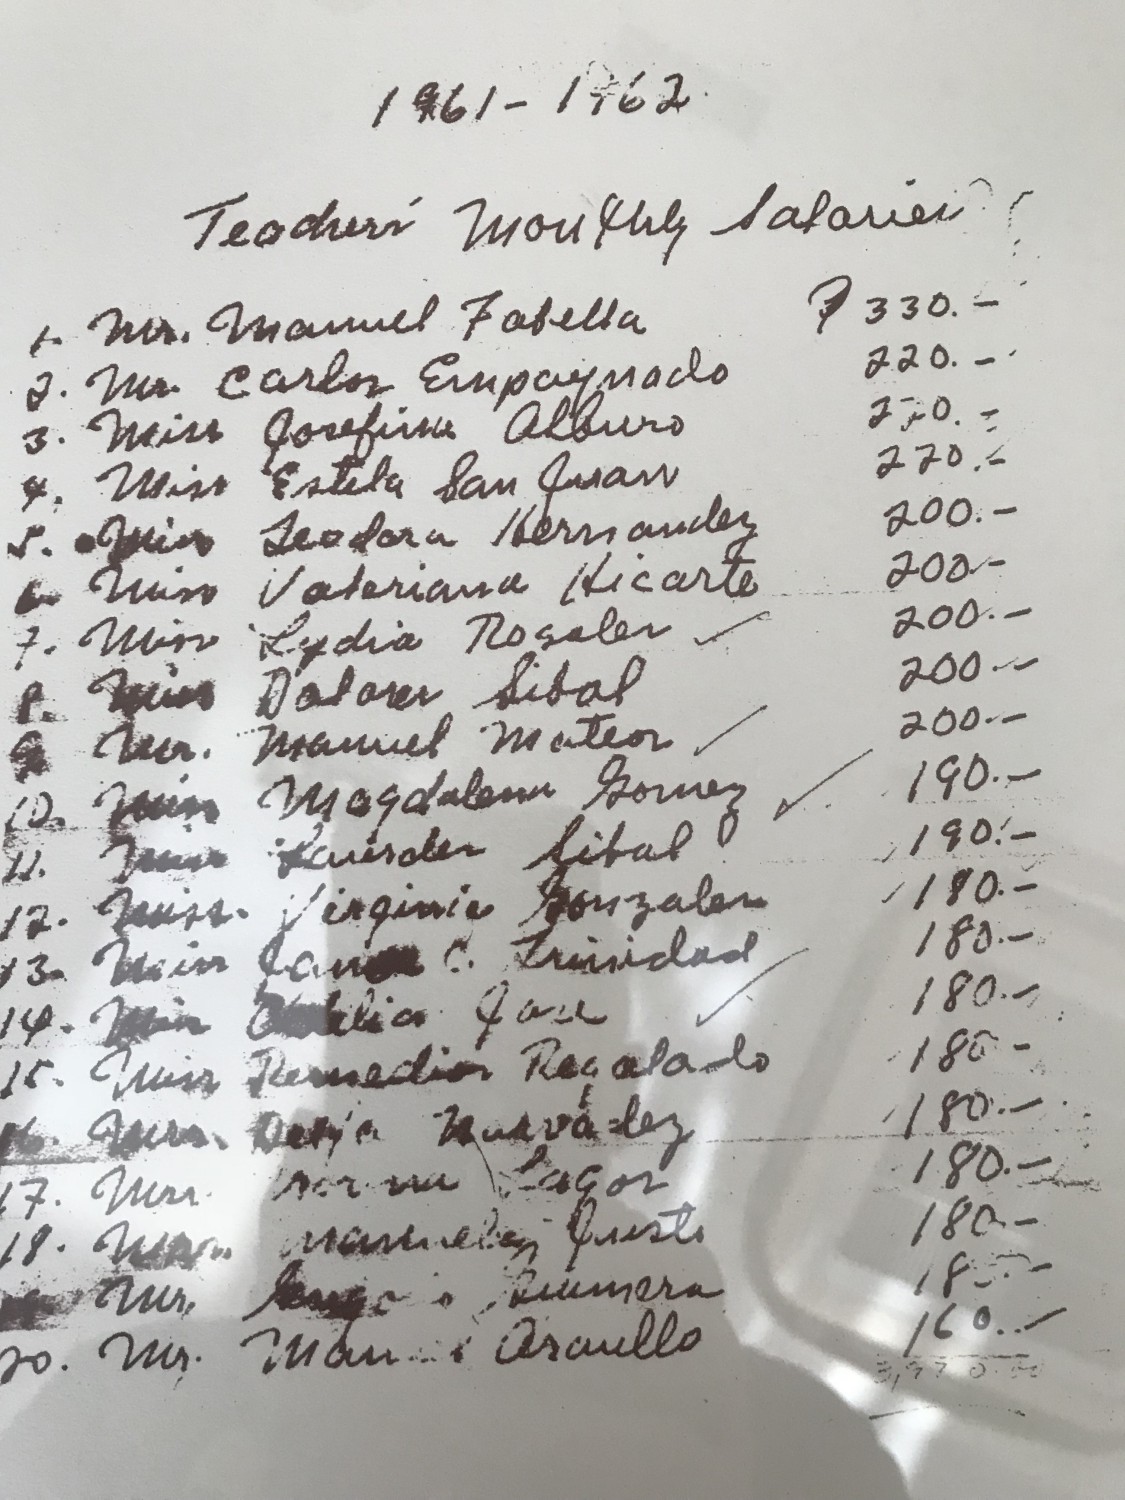 1961-1962
Teachers' Monthly Salaries
1. Mr. Manuel Fabella ₱ 330.-
2. Mr. Carlos Empaynado 220.-
3. Miss Josefina Alburo 220.-
4. Miss Estela San Juan 220.-
5. Miss Teodora Hernandez 200.-
6. Miss Valeriana Hicarte 200-
7. Miss Lydia Rosales 200.-
8. Miss Dolores Sibal 200.-
9. Mr. Manuel Mateos 200.-
10. Miss Magdalena Gomez 190.-
11. Miss Lourdes Sibal 190.-
12. Miss. Virginia Gonzales 180.-
13. Miss C. Trinidad 180.-
14. Miss Jose 180.-
15. Miss Remedios Regalado 180-
16. Mrs. Narváez 180.-
17. Mrs. Lagos 180.-
18. Mrs. Manuela Justo 180-
Mr. 180.-
20. Mr. Araullo 160.-
3,970.00